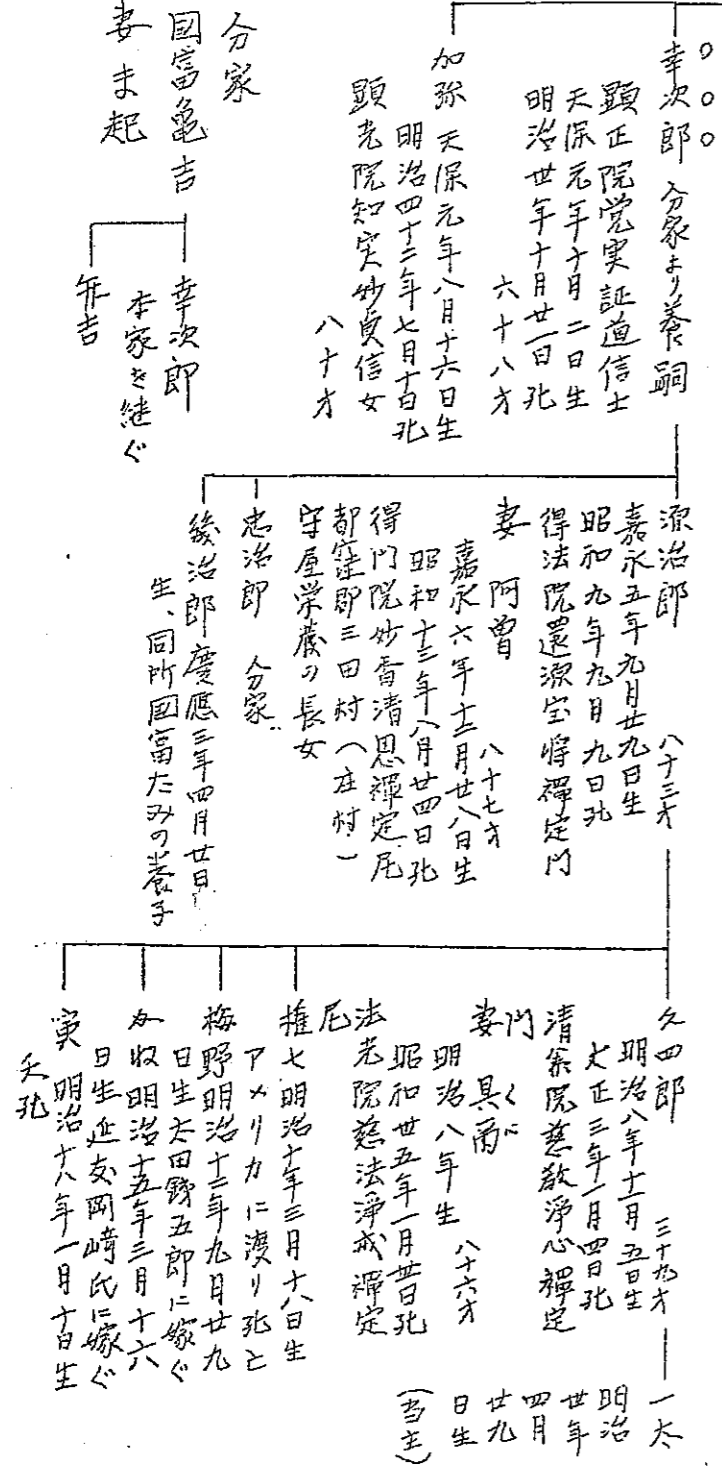 幸次郎 分家より養嗣
顕正院覚実証道信士
天保元年十月二日生
明治廿年十月廿一日死
六十八才
加弥 天保元年八月十六日生
明治四十二年七月十日死
顕光院知実妙貞信女
八十才
分家
國富亀吉
妻 ま起
幸次郎
本家を継ぐ
弁吉
源治郎 八十三才
嘉永五年九月廿九日生
昭和九年九月九日死
得法院還源宝将禅定門
妻 阿曽 八十七才
嘉永六年十二月廿八日生
昭和十三年八月廿四日死
得門院妙香清恩禅定尼
都窪郡三田村(庄村)
守屋栄蔵の長女
忠治郎 分家
後治郎 慶應三年四月廿日
生、同所国富たみの養子
久四郎 三十九才
明治八年十一月五日生
大正三年一月四日死
清泰院慈敬浄心禅定
門
妻 具爾 くに 八十六才
明治八年生
昭和卅五年一月廿日死
法光院慈法浄戒禅定
尼
権七 明治十年三月十八日生
アメリカに渡り死亡
梅野 明治十二年九月廿九
日生 太田銭五郎に嫁ぐ
明治十五年三月十六
日生 延友岡﨑氏に嫁ぐ
寅 明治十八年一月十日生
夭死
一太
明治
廿年
四月
廿九
日生
(当主)